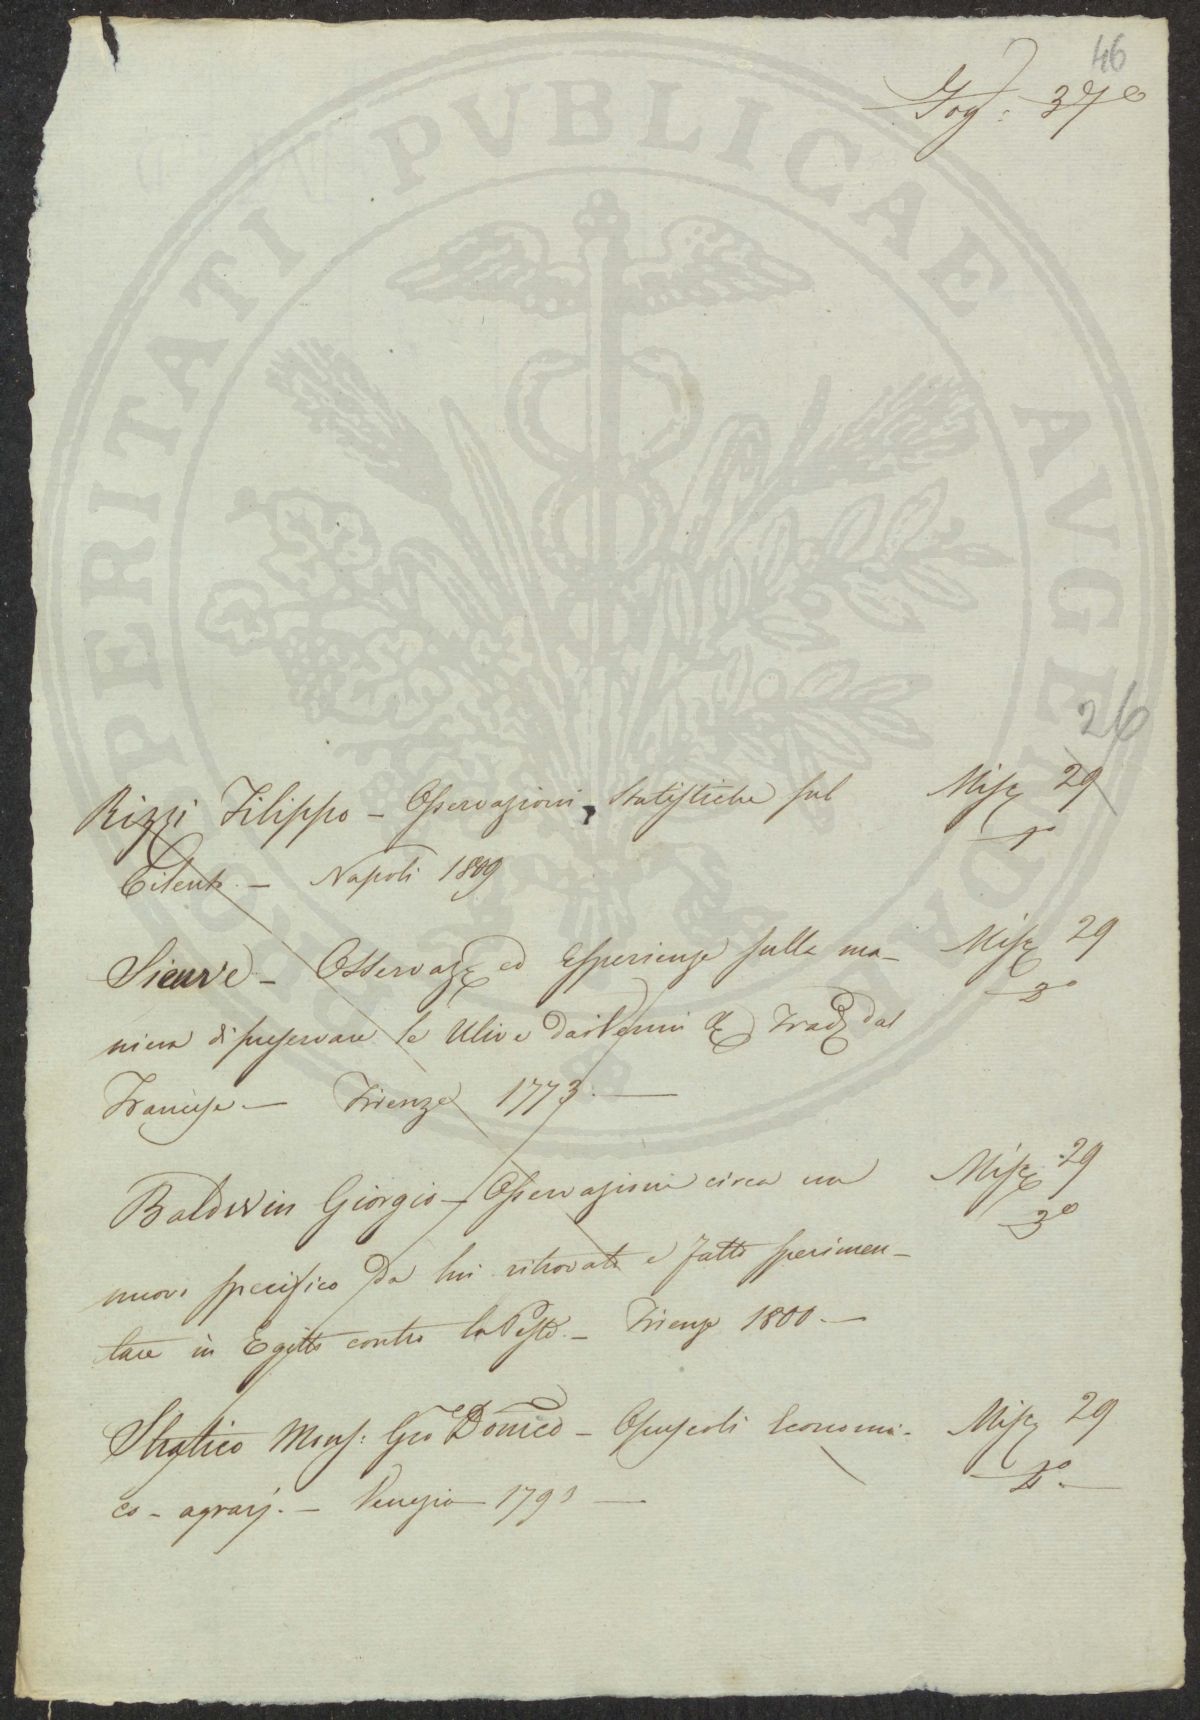 46
Fog: 37º
26
Rizzi Filippo - Osservazioni Statistiche sul Misc 29
Cilento. - Napoli 1809 1º
Sieuve - Osservaze ed Esperienze sulla ma- Misc 29
niera di preservare le Ulive dai Vermi &c Trade dal 2º
Francese - Firenze 1773. -
Baldwin Giorgio - Osservazioni circa un Misc 29
nuovo specifico da lui ritrovato e fatto sperimen- 3º
tare in Egitto contro la Peste. - Firenze 1800. -
Stratico Mons: Gio Domco - Opuscoli Economi- Misc 29
co - agrarj. - Venezia - 1791 -
PROSPERITATI PUBLICAE AVGENDAE